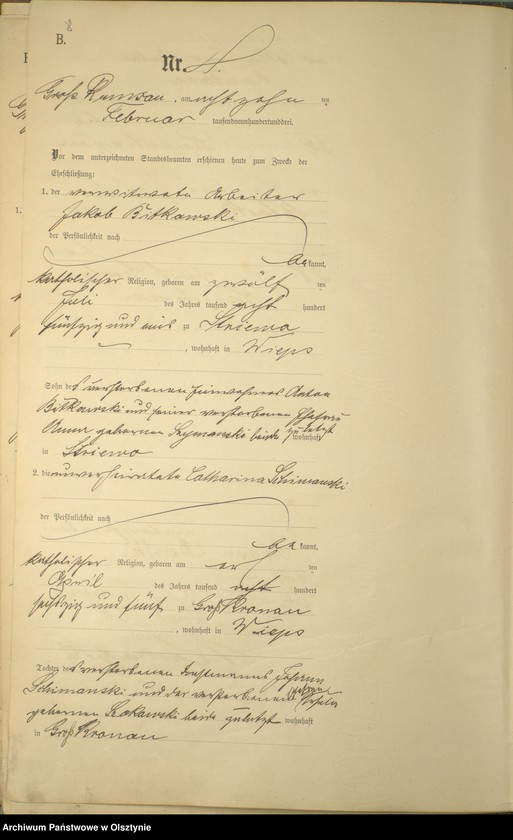 B.
8
Nr. 4.
Groß Ramsau, am achtzehn ten
Februar tausendneunhundertunddrei.
Vor dem unterzeichneten Standesbeamten erschienen heute zum Zwecke der
Eheschließung:
1. der verwitwete Arbeiter
Jakob Bitkowski
der Persönlichkeit nach
bekannt,
katholischer Religion, geboren am zwölf ten
Juli des Jahres tausend acht hundert
fünfzig und eins zu Striewo
, wohnhaft in Wieps
Sohn des verstorbenen Einwohners Anton
Bitkowski und seiner verstorbenen Ehefrau
Anna geborenen Szymanski beide zuletzt wohnhaft
in Striewo
2. die unverheiratete Catharina Schimanski
der Persönlichkeit nach
bekannt,
katholischer Religion, geboren am ten
April des Jahres tausend acht hundert
sechszig und fünf zu Groß Kronau
, wohnhaft in Wieps
Tochter des verstorbenen Johann
Schimanski und der verstorbenen
geborenen beide zuletzt wohnhaft
in Groß Kronau
1.
Archiwum Państwowe w Olsztynie